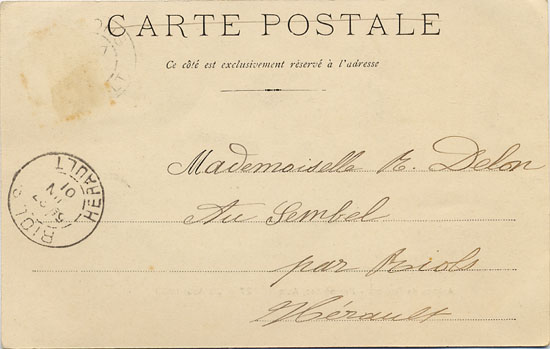 CARTE POSTALE
Ce côté est exclusivement réservé à l'adresse
Mademoiselle R. Delon
Au Sembel
par Riols
Hérault
RIOLS
HERAULT